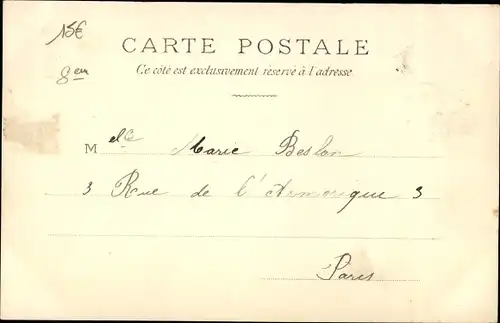 15€
8em
CARTE POSTALE
Ce côté est exclusivement réservé à l'adresse
Melle Marie Beslon
3 Rue de l'Armorique 3
Paris